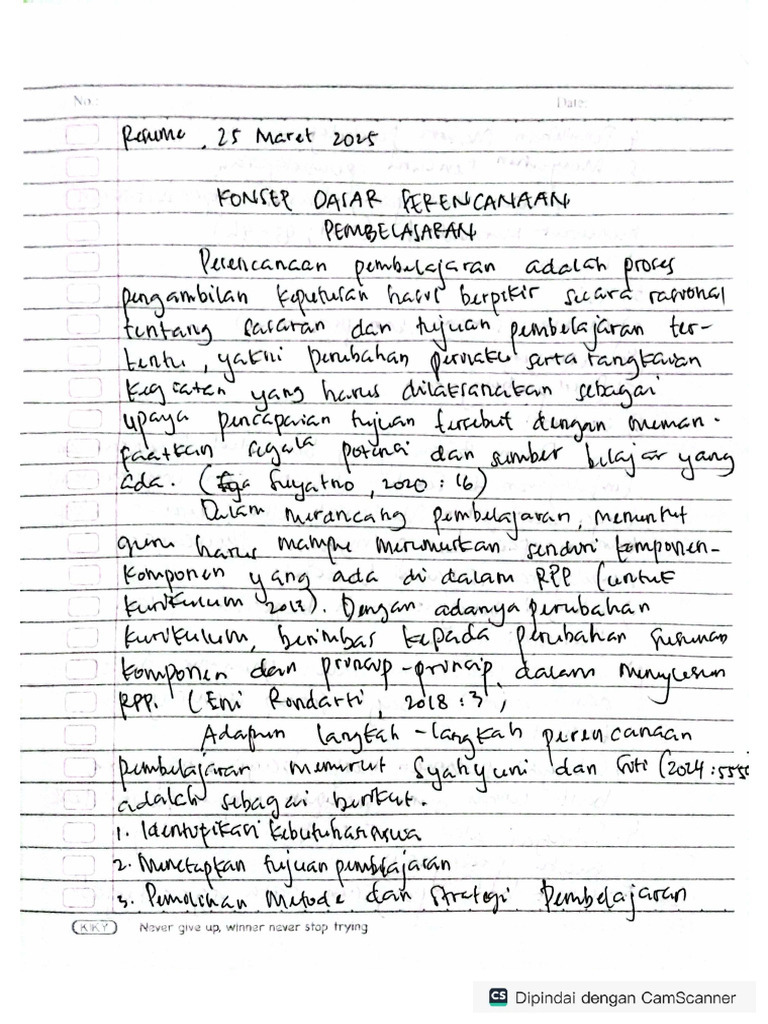 No.: Date:
Resume, 25 Maret 2025
KONSEP DASAR PERENCANAAN
PEMBELAJARAN
Perencanaan pembelajaran adalah proses
pengambilan keputusan hasil berpikir secara rasional
tentang sasaran dan tujuan pembelajaran ter-
tentu, yakni perubahan perilaku serta rangkaian
kegiatan yang harus dilaksanakan sebagai
upaya pencapaian tujuan tersebut dengan meman-
faatkan segala potensi dan sumber belajar yang
ada. ( Suyatno, 2020 : 16)
Dalam merancang pembelajaran, menuntut
guru harus mampu merumuskan sendiri komponen-
komponen yang ada di dalam RPP (untuk
kurikulum 2013). Dengan adanya perubahan
kurikulum, berimbas kepada perubahan susunan
komponen dan prinsip-prinsip dalam menyusun
RPP. (Eni Rondarti, 2018 : 3)
Adapun langkah-langkah perencanaan
pembelajaran menurut Syahyuni dan (2024 : 555
adalah sebagai berikut.
1. Identifikasi kebutuhan siswa
2. Menetapkan tujuan pembelajaran
3. Pemilihan Metode dan Strategi Pembelajaran
KIKY Never give up, winner never stop trying
CS Dipindai dengan CamScanner